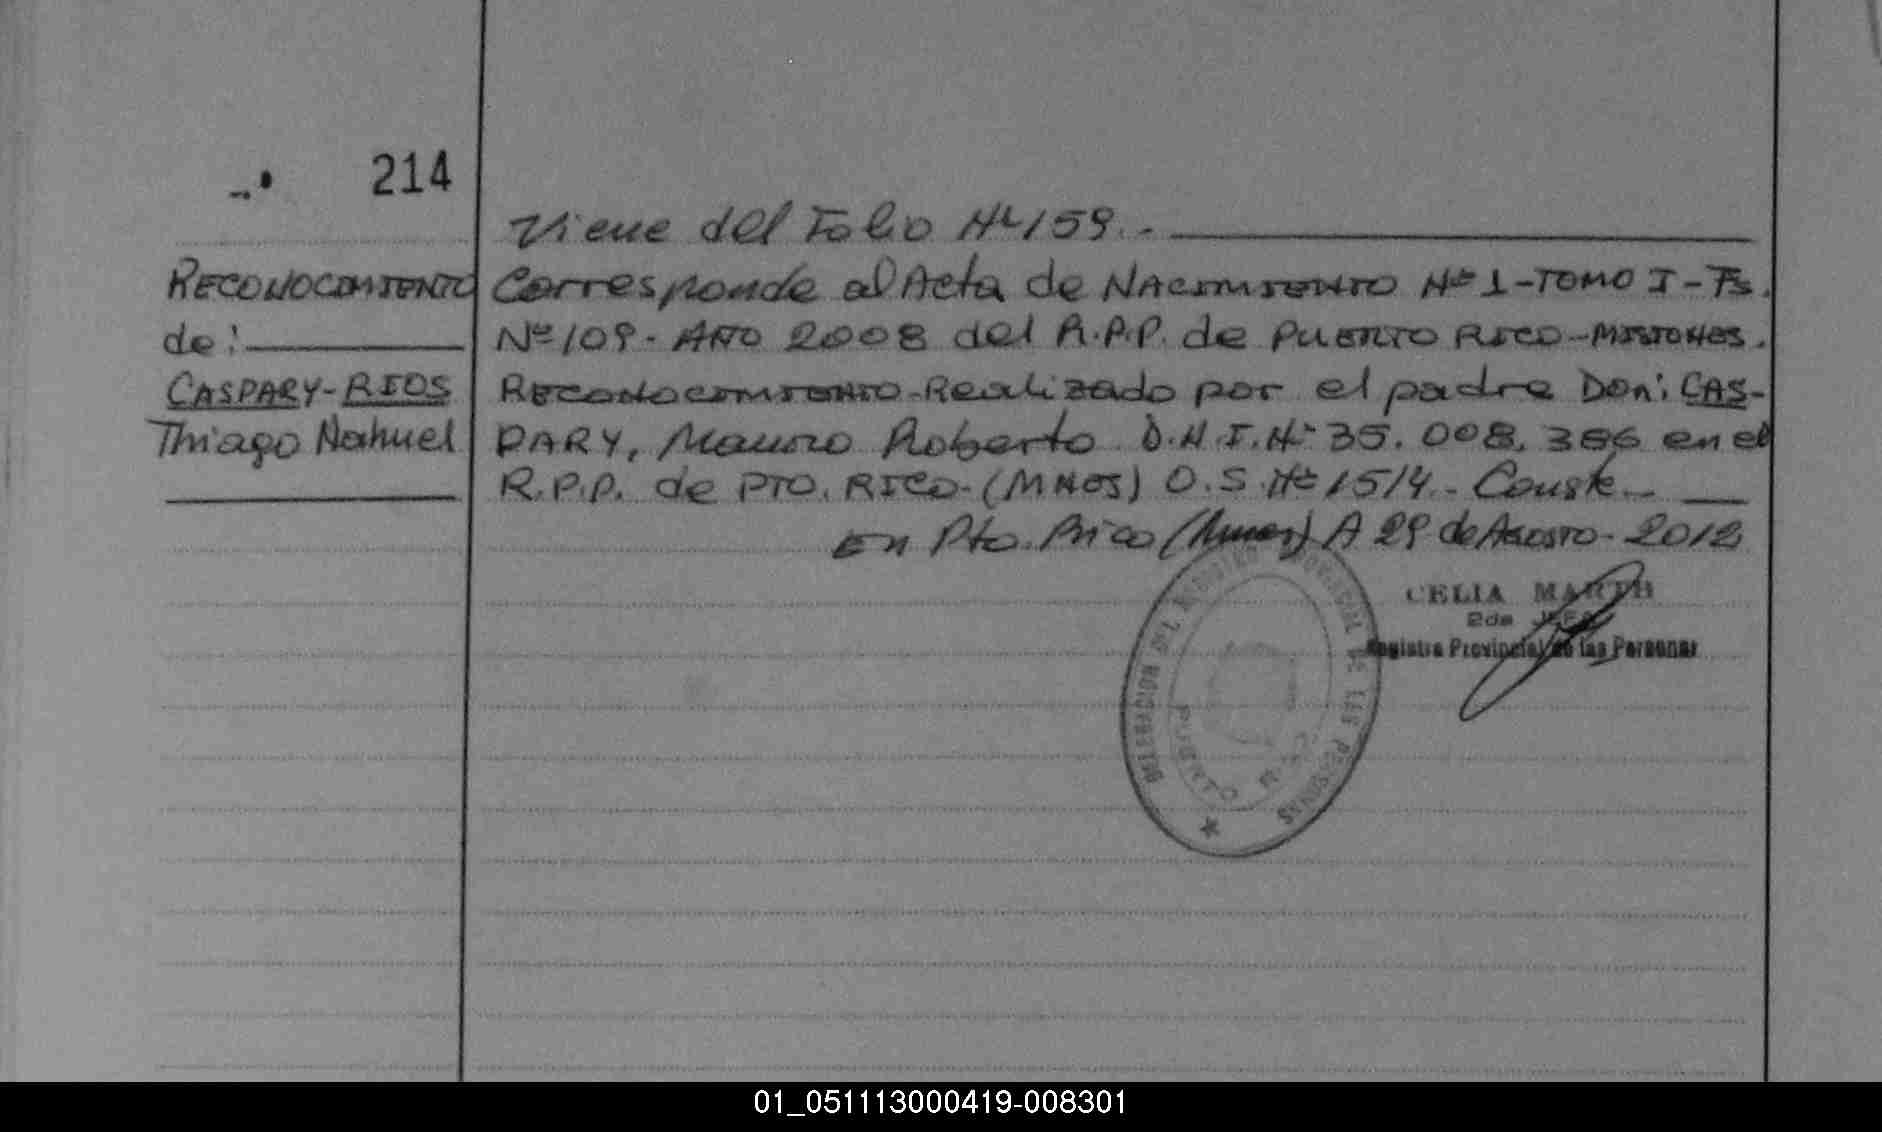 214
Viene del Folio Nº 159.-
RECONOCIMIENTO
de:
CASPARY-RIOS
Thiago Nahuel
Corresponde al Acta de NACIMIENTO Nº 1-TOMO I-Fs.
Nº 109- AÑO 2008 del R.P.P. de PUERTO RICO-MISIONES.
RECONOCIMIENTO-Realizado por el padre Don: CAS-
PARY, Mauro Roberto D.N.I.Nº 35.008.386 en el
R.P.P. de PTO. RICO-(MNES) O.S. Nº 1514.- Conste.-
En Pto. Rico (Mnes) A 29 de Agosto- 2012
CELIA MARTH
2da JEFA
Registro Provincial de las Personas
DELEGACION DEL REGISTRO PROVINCIAL DE LAS PERSONAS
PUERTO RICO
01_051113000419-008301